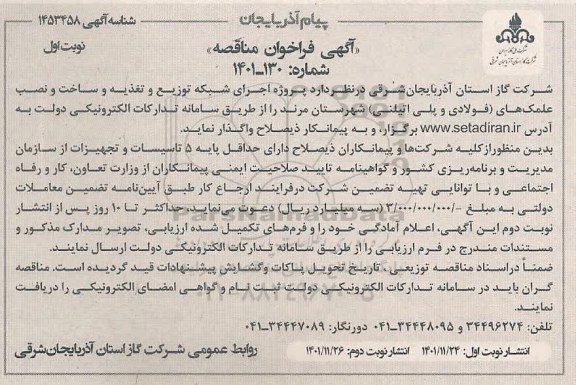 پیام آذربایجان
شناسه آگهی ۱۴۵۳۴۵۸
نوبت اول
«آگهی فراخوان مناقصه»
شماره: ۱۳۰-۱۴۰۱
شرکت گاز استان آذربایجان‌شرقی درنظردارد پروژه اجرای شبکه توزیع و تغذیه و ساخت و نصب
علمک‌های (فولادی و پلی اتیلنی) شهرستان مرند را از طریق سامانه تدارکات الکترونیکی دولت به
آدرس www.setadiran.ir برگزار، و به پیمانکار ذیصلاح واگذار نماید.
بدین منظور از کلیه شرکت‌ها و پیمانکاران ذیصلاح دارای حداقل پایه ۵ تاسیسات و تجهیزات از سازمان
مدیریت و برنامه‌ریزی کشور و گواهینامه تایید صلاحیت ایمنی پیمانکاران از وزارت تعاون، کار و رفاه
اجتماعی و با توانایی تهیه تضمین شرکت درفرایند ارجاع کار طبق آیین‌نامه تضمین معاملات
دولتی به مبلغ -/۳/۰۰۰/۰۰۰/۰۰۰ (سه میلیارد ریال) دعوت می‌نماید، حداکثر تا ۱۰ روز پس از انتشار
نوبت دوم این آگهی، اعلام آمادگی خود را و فرم‌های تکمیل شده ارزیابی، تصویر مدارک مذکور و
مستندات مندرج در فرم ارزیابی را از طریق سامانه تدارکات الکترونیکی دولت ارسال نمایند.
ضمناً دراسناد مناقصه توزیعی، تاریخ تحویل پاکات وگشایش پیشنهادات قید گردیده است. مناقصه
گران باید در سامانه تدارکات الکترونیکی دولت ثبت نام و گواهی امضای الکترونیکی را دریافت
نمایند.
تلفن: ۳۴۴۹۶۲۷۴ و ۳۴۴۴۸۰۹۵-۰۴۱ دورنگار: ۳۴۴۴۷۰۸۹-۰۴۱
انتشار نوبت اول: ۱۴۰۱/۱۱/۲۴ انتشار نوبت دوم: ۱۴۰۱/۱۱/۲۶
روابط عمومی شرکت گاز استان آذربایجان‌شرقی
ParsNamadData